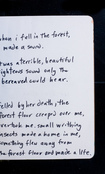 when i fell in the forest,
i made a sound.
it was a terrible, beautiful
righteous sound only the
bereaved could hear.
felled by her death, the
forest floor creeps over me,
overtook me. small writhing
insects made a home in me,
something flew away from
the forest floor and made a life.